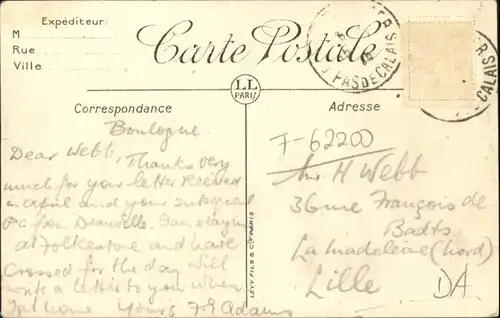 Expéditeur:
M
Rue
Ville
Carte Postale
PAS DE CALAIS
CALAIS
LL
PARIS
Correspondance
Adresse
Boulogne
Dear Webb, Thanks very
much for your letter received
in April and your subsequent
PC from Deauville. I am staying
at Folkestone and have
crossed for the day will
write a letter to you when
I get home Yours F E Adams
LÉVY FILS & Cie PARIS
F-62200
H Webb
36 rue François de
Badts
La Madeleine (Nord)
Lille
DA